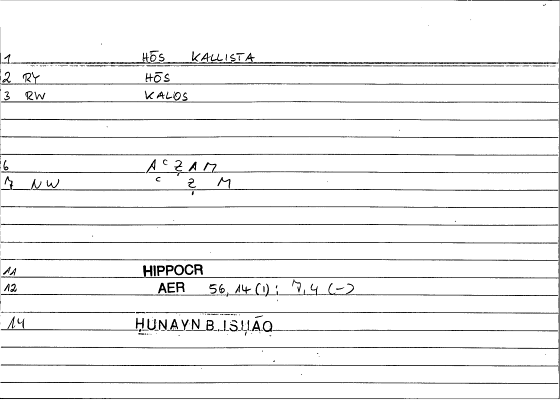 1 HŌS KALLISTA
2 RY HŌS
3 RW KALOS
6 A ᶜ Ẓ A M
7 NW ᶜ Ẓ M
11 HIPPOCR
12 AER 56, 14 (1) ; 7, 4 (-)
14 ḤUNAYN B. ISḤĀQ